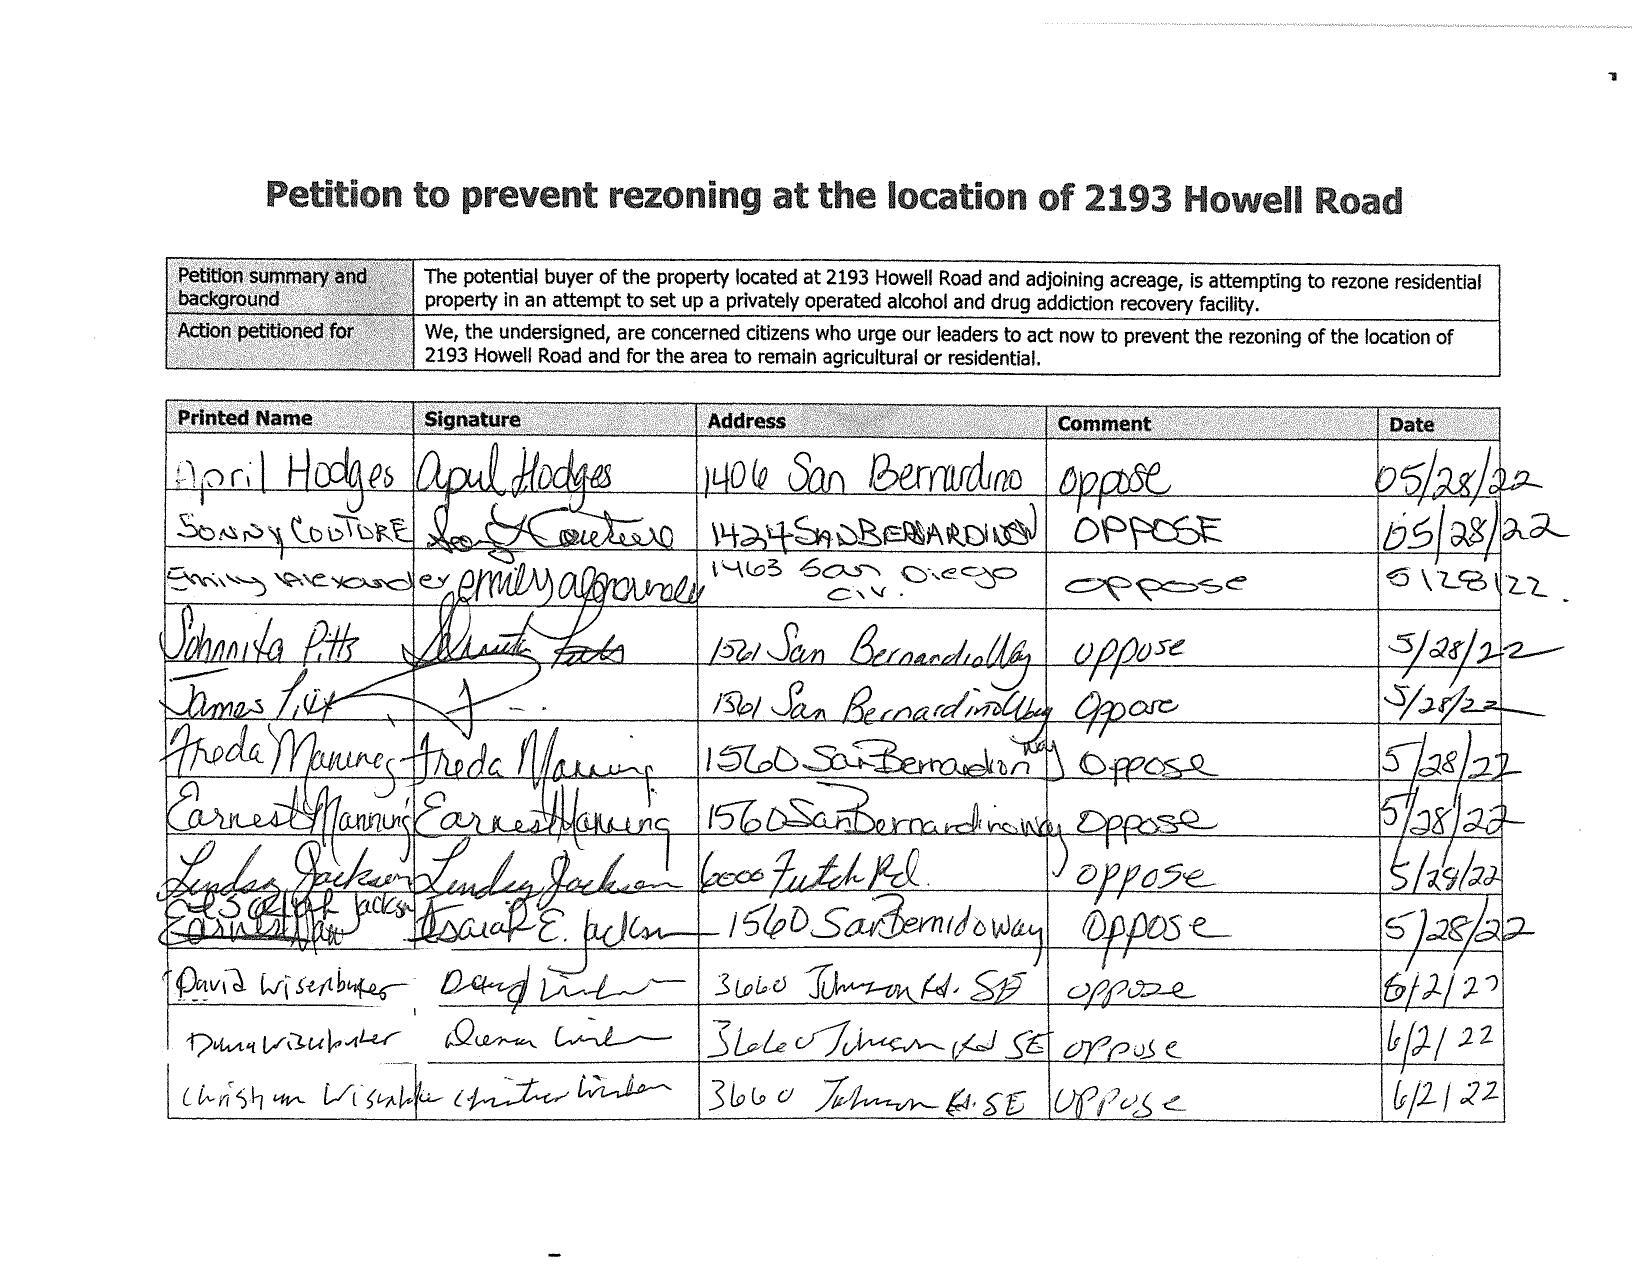 Petition to prevent rezoning at the location of 2193 Howell Road
Petition summary and background
The potential buyer of the property located at 2193 Howell Road and adjoining acreage, is attempting to rezone residential
property in an attempt to set up a privately operated alcohol and drug addiction recovery facility.
Action petitioned for
We, the undersigned, are concerned citizens who urge our leaders to act now to prevent the rezoning of the location of
2193 Howell Road and for the area to remain agricultural or residential.
Printed Name Signature Address Comment Date
April Hodges April Hodges 1406 San Bernardino oppose 05/28/22
SONNY COUTURE Couture 1424 SAN BERNARDINO OPPOSE 05/28/22
Emily Alexander 1463 San Diego oppose 5/28/22
Johnnita Pitts 1561 San Bernandio Way oppose 5/28/22
James 1561 San Bernardino Way Oppose 5/28/22
Freda Manning Freda Manning 1560 San Bernardion way Oppose 5/28/22
Earnest Manning Earnest Manning 1560 San Bernardino way Oppose 5/28/22
Lindsey Jackson Lindsey Jackson 6000 Futch Rd. oppose 5/28/22
Jackson Isaiah E. Jackson 1560 San Bernido way Oppose 5/28/22
David Wisenbaker David 3660 Johnson Rd. SE oppose 6/2/22
3660 Johnson Rd SE oppose 6/2/22
Christian Wisenbaker 3660 Johnson Rd. SE oppose 6/2/22